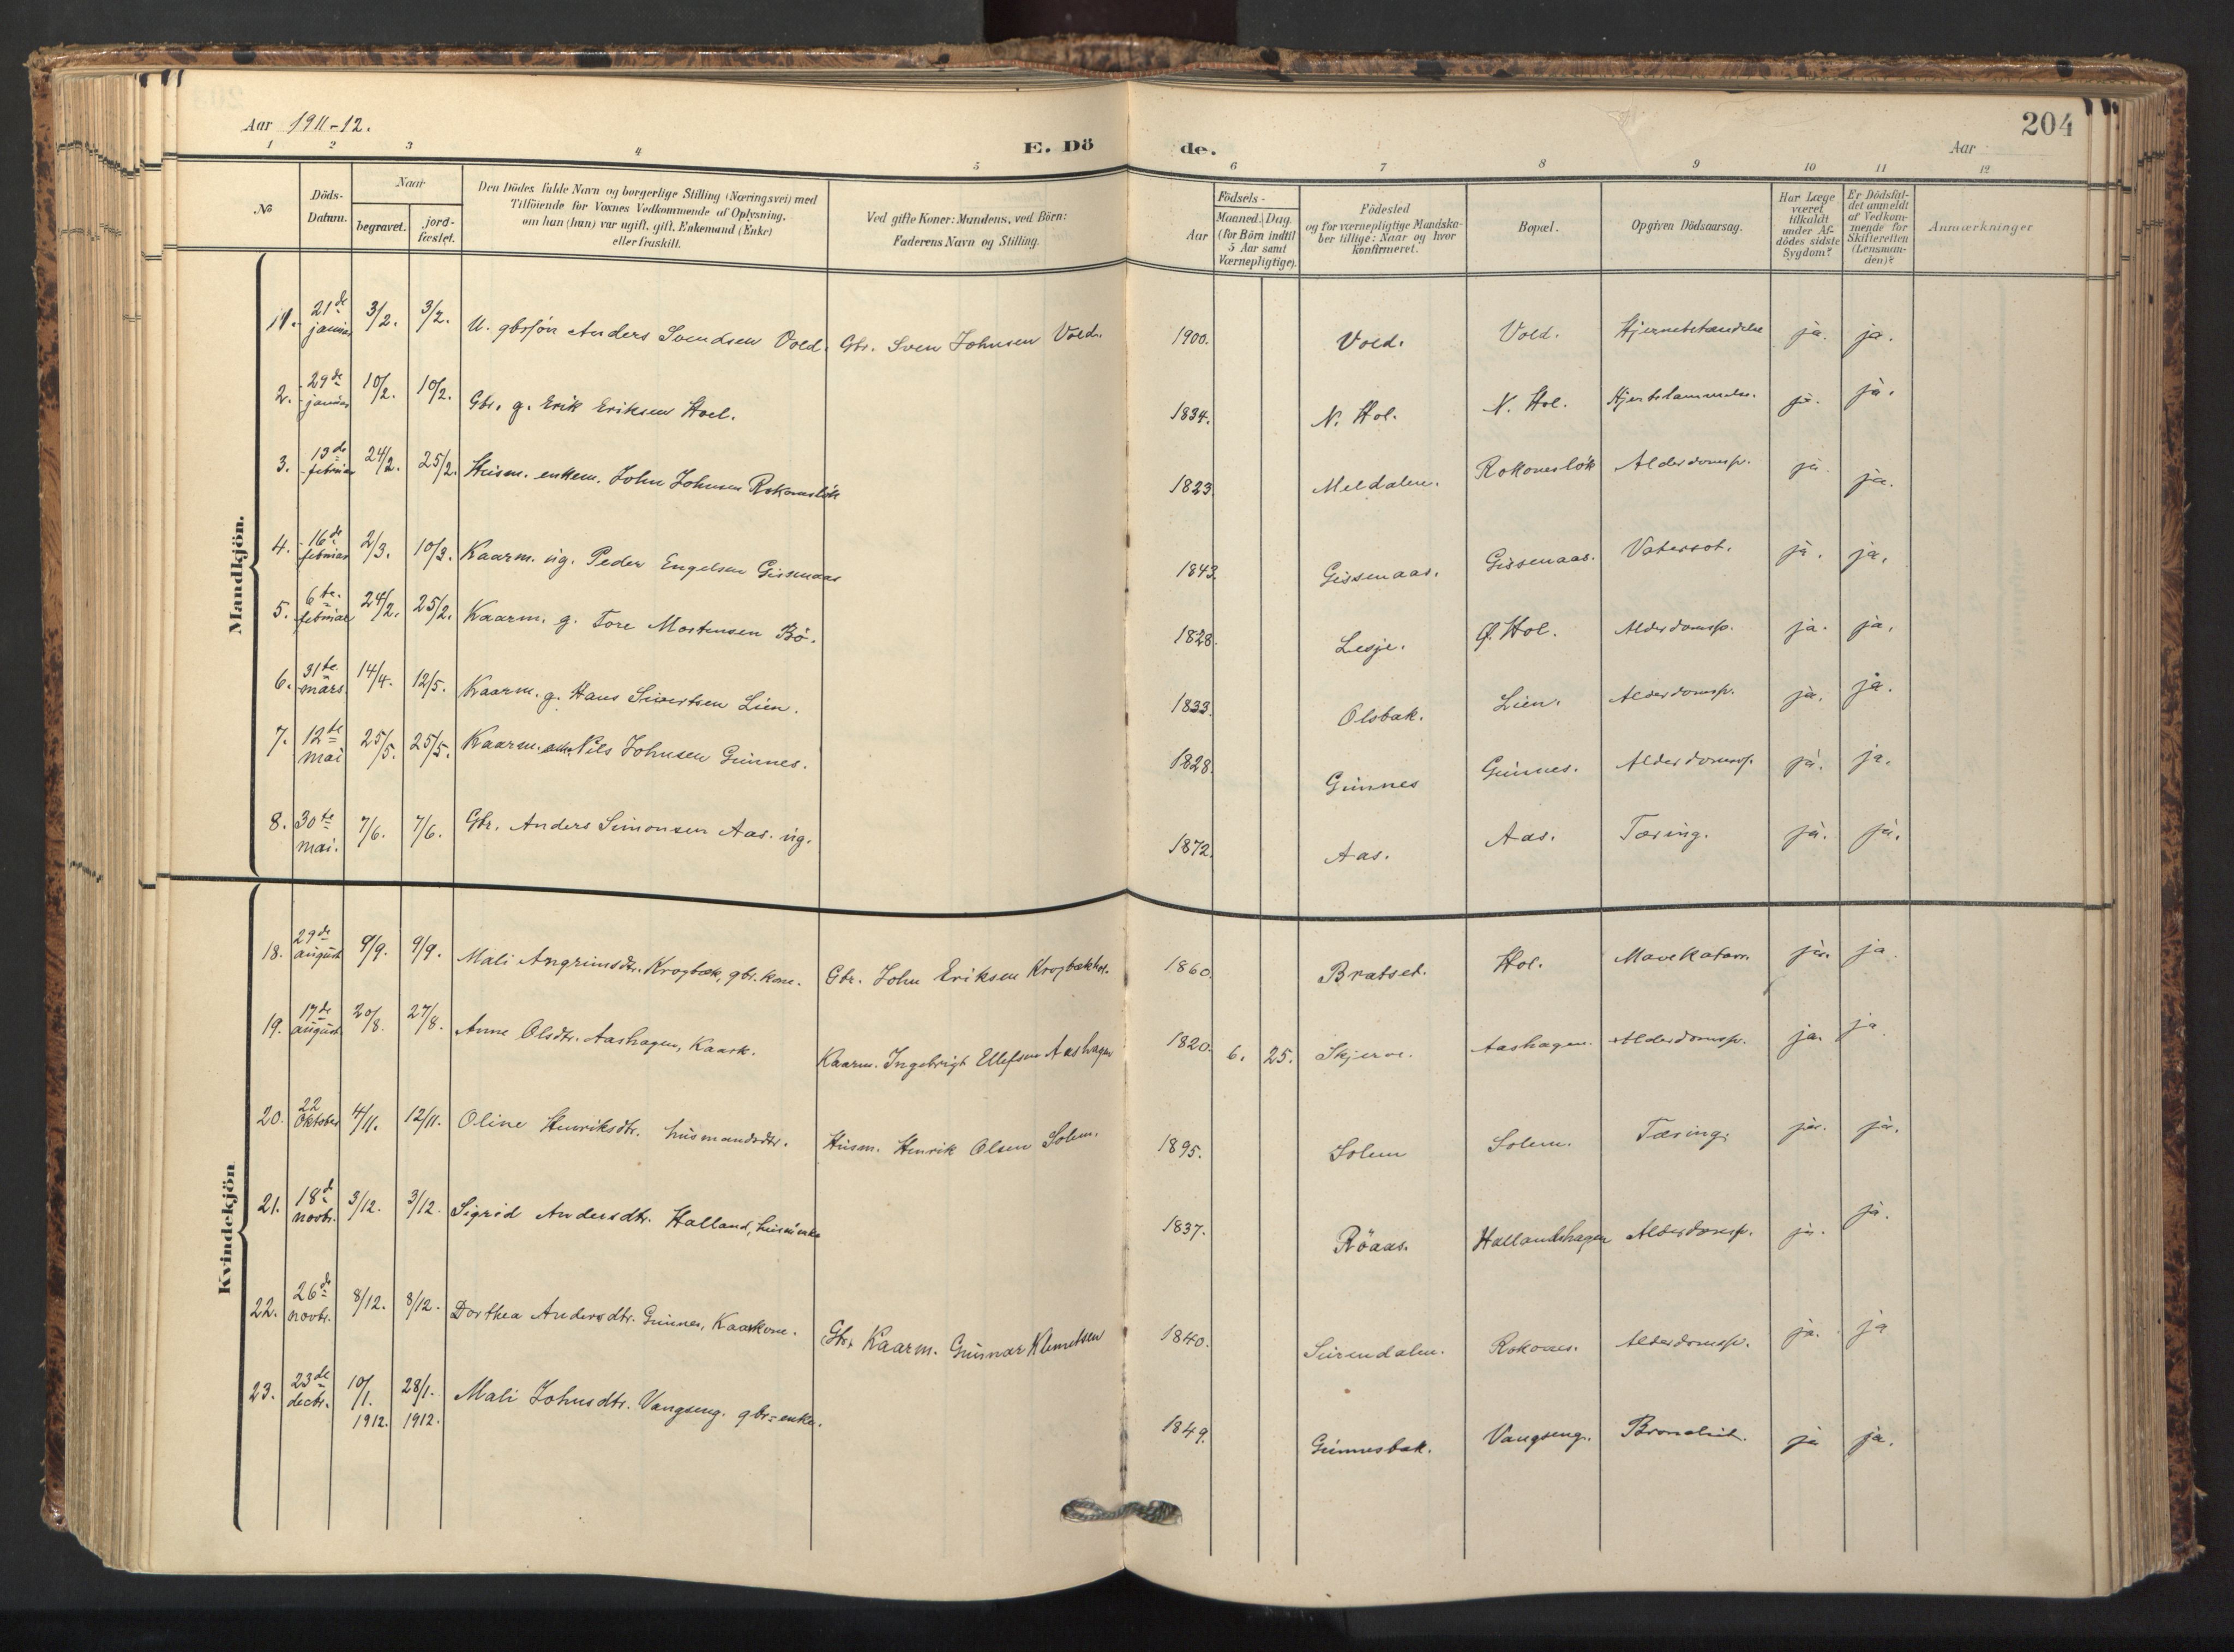 204
Aar 1911-12.
E. Dö de.
Aar
1 2 3 4 5 6 7 8 9 10 11 12
No
Döds-Datum.
Naar
begravet.
jord-fæstet.
Den Dödes fulde Navn og borgerlige Stilling (Næringsvei) med
Tilföiende for Voxnes Vedkommende af Oplysning,
om han (hun) var ugift, gift, Enkemand (Enke)
eller fraskilt.
Ved gifte Koner: Mandens, ved Börn:
Faderens Navn og Stilling.
Födsels-
Aar
Maaned. Dag.
(for Börn indtil
5 Aar samt
Værnepligtige).
Födested
og for værnepligtige Mandska-
ber tillige: Naar og hvor
konfirmeret.
Bopæl.
Opgiven Dödsaarsag.
Har Læge
været
tilkaldt
under Af-
dödes sidste
Sygdom?
Er Dödsfal-
det anmeldt
af Vedkom-
mende for
Skifteretten
(Lensman-
den)?
Anmærkninger
Mandkjön.
1. 21de januar 3/2. 3/2. U. gbrsön Anders Svendsen Vold. Gbr. Sven Johnsen Vold. 1900. Vold. Vold. Hjernebetændelse ja. ja.
2. 29de januar 10/2. 10/2. Gbr. g. Erik Eriksen Hoel. 1834. N. Hol. N. Hol. Hjertelammelse. ja. ja.
3. 13de februar 24/2. 25/2. Husm. enkem. John Johnsen Rokonesløk 1823. Meldalen. Rokonesløk Alderdomssv. ja. ja.
4. 16de februar 2/3. 10/3. Kaarm. ug. Peder Engelsen Gissenaas 1843. Gissenaas. Gissenaas. Vatersot. ja. ja.
5. 6te februar 24/2. 25/2. Kaarm. g. Tore Mortensen Bö. 1828. Lesje. Ø. Hol. Alderdomssv. ja. ja.
6. 31te mars 14/4. 12/5. Kaarm. g. Hans Sivertsen Lien. 1833. Olsbak. Lien. Alderdomssv. ja. ja.
7. 12te mai 25/5. 25/5. Kaarm. enk. Nils Johnsen Gunnes. 1828. Gunnes Gunnes. Alderdomssv. ja. ja.
8. 30te mai. 7/6. 7/6. Gbr. Anders Simonsen Aas. ug. 1872. Aas. Aas. Tæring. ja. ja.
Kvindekjön
18. 29de august 9/9. 9/9. Mali Angrimsdtr. Krogbæk, gbr. kone. Gbr. John Eriksen Krogbækhol. 1860. Bratset. Hol. Mavekatarr. ja. ja
19. 17de august 20/8. 27/8. Anne Olsdtr. Aashagen, Kaark. Kaarm. Ingebrigt Ellefsen Aashagen 1820. 6. 25. Skjerve. Aashagen. Alderdomssv. ja. ja
20. 22 Oktober 4/11. 12/11. Oline Henriksdtr. husmandsdtr. Husm. Henrik Olsen Solem. 1895. Solem Solem. Tæring. ja. ja.
21. 18d novbr. 3/12. 3/12. Sigrid Andersdtr. Halland, husm.enke 1837. Röaas. Hallandshagen Alderdomssv. ja. ja.
22. 26de novbr. 8/12. 8/12. Dorthea Andersdtr. Gunnes, Kaarkone. Gbr. Kaarm. Gunnar Klemetsen 1840. Surendalen. Rokones. Alderdomssv. ja. ja
23. 23de decbr. 10/1. 1912. 28/1. 1912. Mali Johnsdtr. Vangseng. gbr-enke. 1849. Gunnesbak. Vangseng. Bronchit. ja ja.